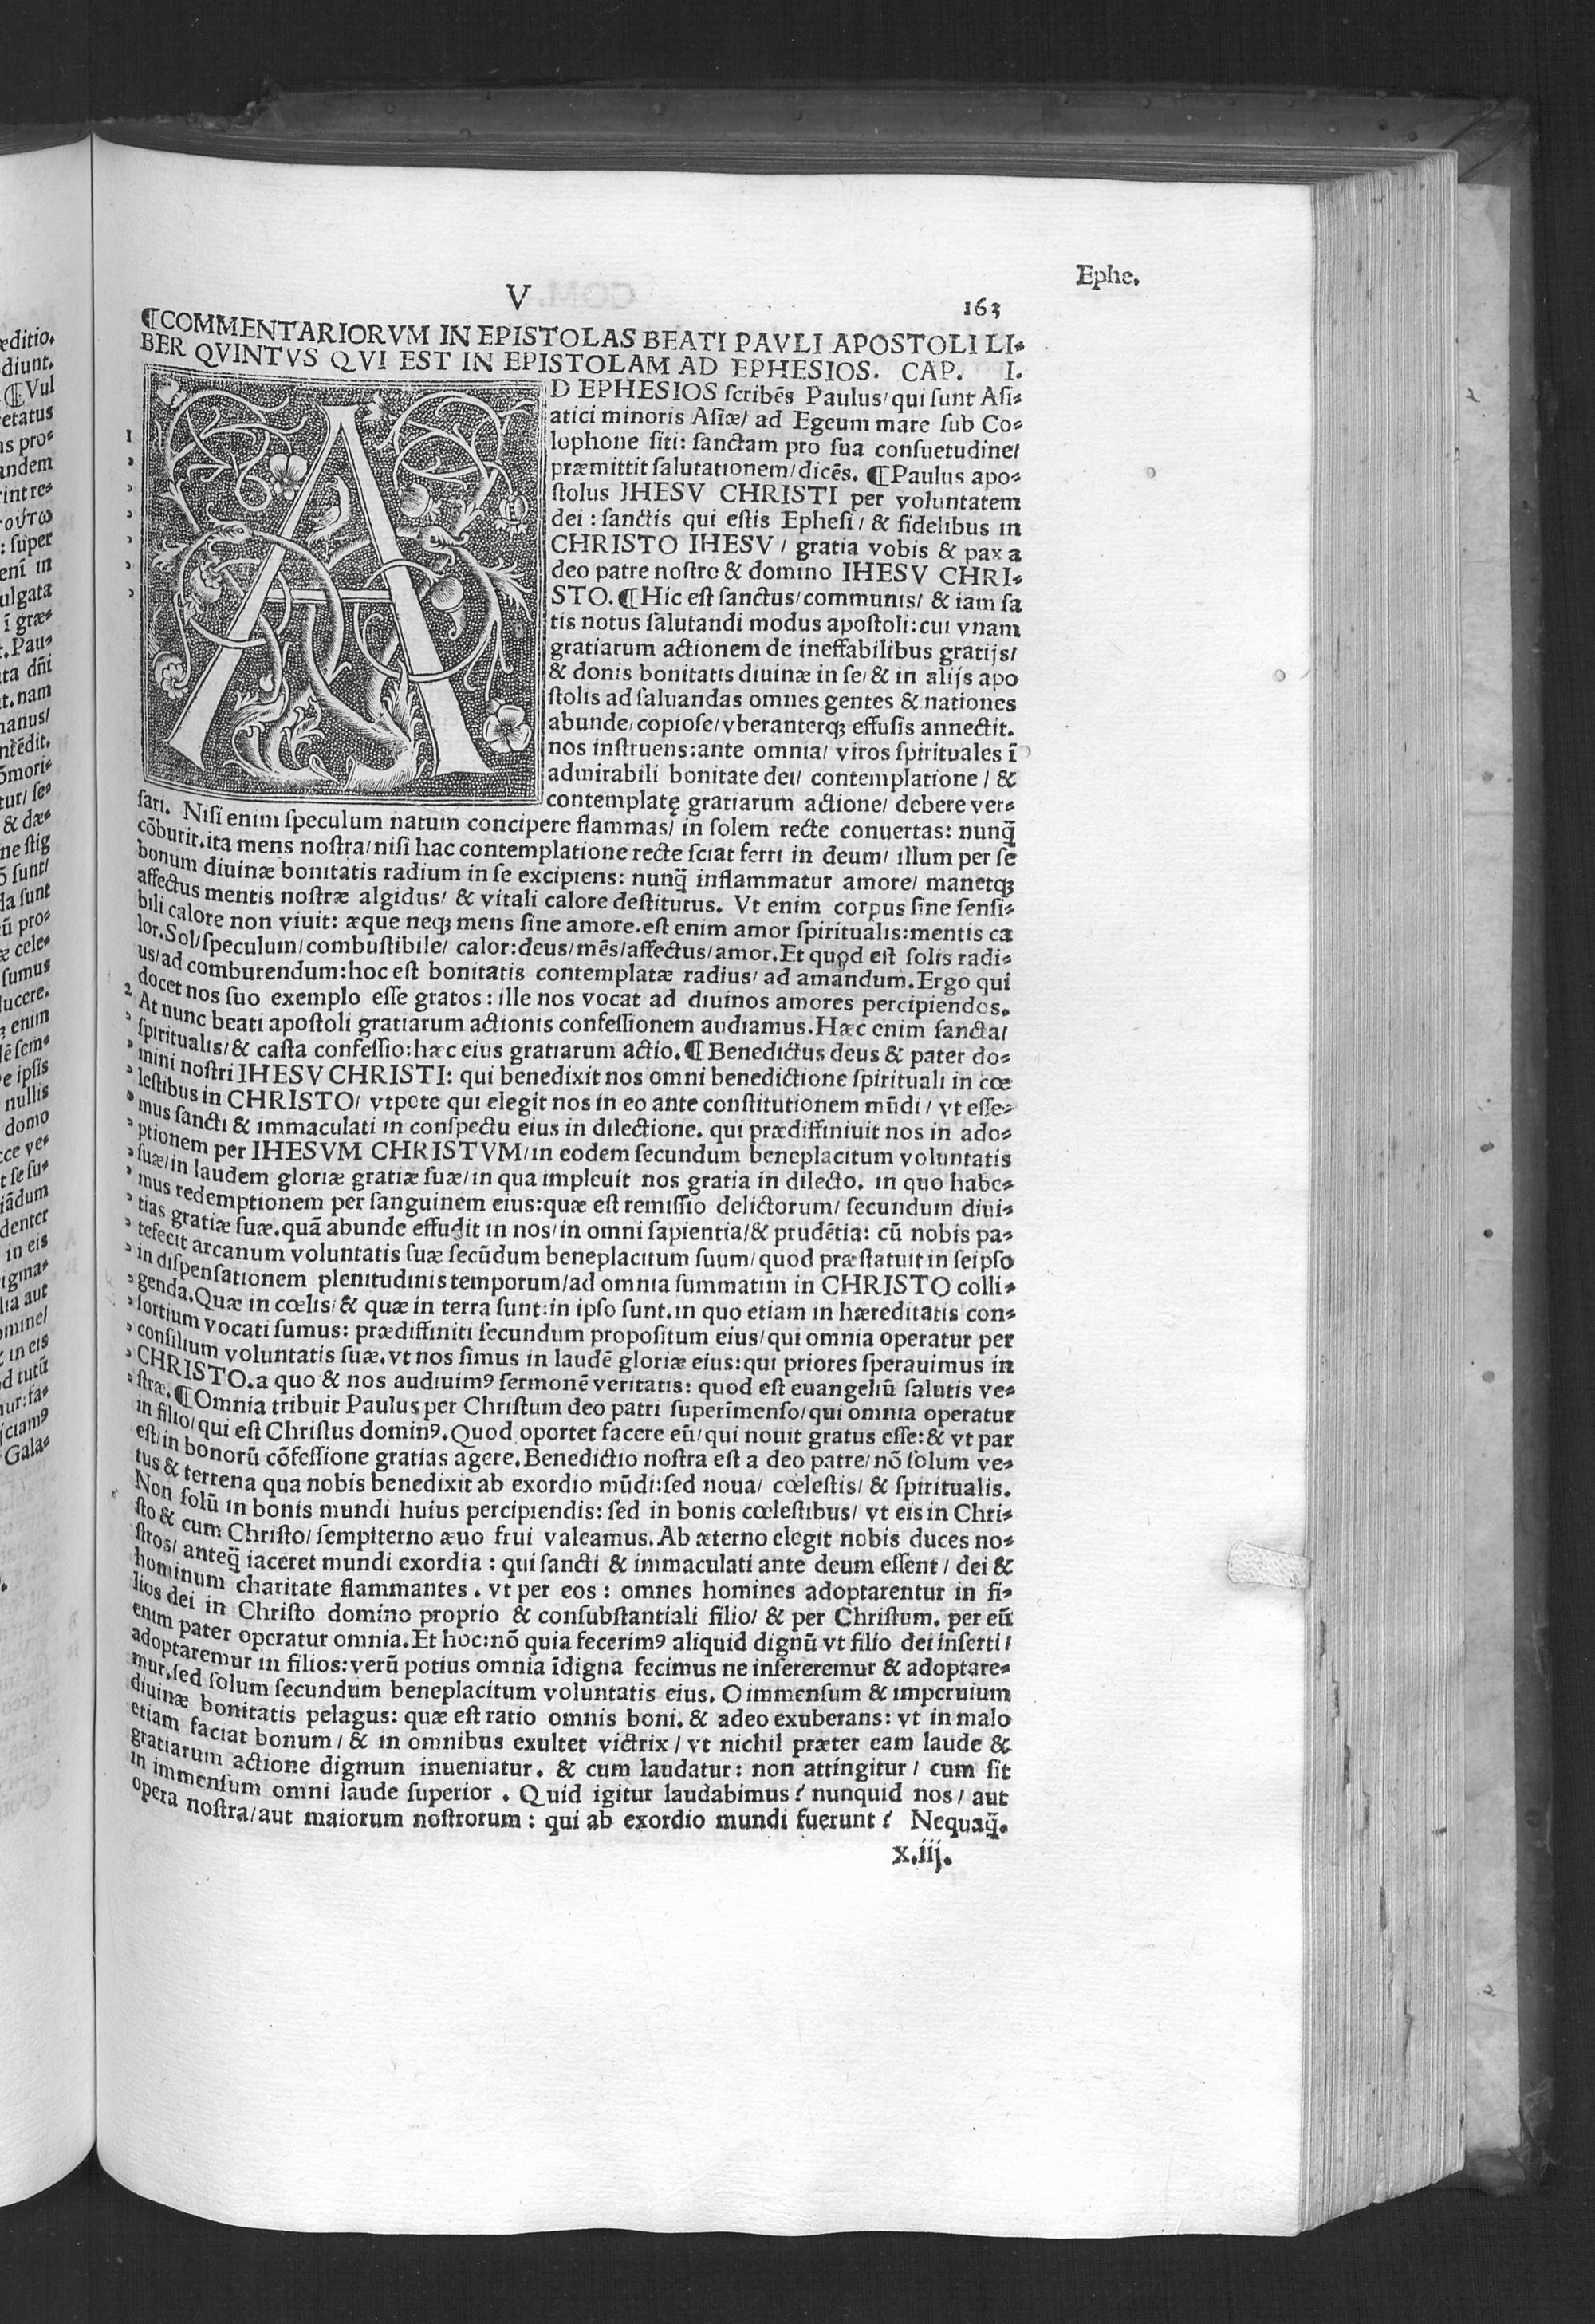 æditio.
diunt.
¶Vul
etatus
as pro-
andem
rint res-
οὕτω
: super
enī in
ulgata
ī græ-
t. Pau-
ita dñi
nt. nam
manus/
ntēdit.
ōmori-
tur/ se-
& dæ-
ne stig
ō sunt/
da sunt
ū pro-
æ cele-
sumus
lucere.
enim
lē sem-
e ipsis
nullis
domo
cce ve-
t se su-
iādum
denter
in eis
igma-
lia aut
omine/
in eis
d tutū
nur: fa-
iciamꝰ
Gala-
Ephe.
V
163
¶COMMENTARIORVM IN EPISTOLAS BEATI PAVLI APOSTOLI LI-
BER QVINTVS QVI EST IN EPISTOLAM AD EPHESIOS. CAP. I.
AD EPHESIOS scribēs Paulus/ qui sunt Asi-
atici minoris Asiæ/ ad Egeum mare sub Co-
1 lophone siti: sanctam pro sua consuetudine/
præmittit salutationem/ dicēs. ¶Paulus apo-
stolus IHESV CHRISTI per voluntatem
dei: sanctis qui estis Ephesi/ & fidelibus in
CHRISTO IHESV/ gratia vobis & pax a
deo patre nostro & domino IHESV CHRI-
STO. ¶Hic est sanctus/ communis/ & iam sa
tis notus salutandi modus apostoli: cui vnam
gratiarum actionem de ineffabilibus gratijs/
& donis bonitatis diuinæ in se/ & in alijs apo
stolis ad saluandas omnes gentes & nationes
abunde/ copiose/ vberanterqꝫ effusis annectit.
nos instruens: ante omnia/ viros spirituales ī
admirabili bonitate dei/ contemplatione/ &
contemplatę gratiarum actione/ debere ver-
sari. Nisi enim speculum natum concipere flammas/ in solem recte conuertas: nunq̄
cōburit. ita mens nostra/ nisi hac contemplatione recte sciat ferri in deum/ illum per se
bonum diuinæ bonitatis radium in se excipiens: nunq̄ inflammatur amore/ manetqꝫ
affectus mentis nostræ algidus/ & vitali calore destitutus. Vt enim corpus sine sensi-
bili calore non viuit: æque neqꝫ mens sine amore. est enim amor spiritualis: mentis ca
lor. Sol/ speculum/ combustibile/ calor: deus/ mēs/ affectus/ amor. Et quod est solis radi-
us/ ad comburendum: hoc est bonitatis contemplatæ radius/ ad amandum. Ergo qui
docet nos suo exemplo esse gratos: ille nos vocat ad diuinos amores percipiendos.
2 At nunc beati apostoli gratiarum actionis confessionem audiamus. Hæc enim sancta/
spiritualis/ & casta confessio: hæc eius gratiarum actio. ¶Benedictus deus & pater do-
mini nostri IHESV CHRISTI: qui benedixit nos omni benedictione spirituali in cœ
lestibus in CHRISTO/ vtpote qui elegit nos in eo ante constitutionem mūdi/ vt esse-
mus sancti & immaculati in conspectu eius in dilectione. qui prædiffiniuit nos in ado-
ptionem per IHESVM CHRISTVM/ in eodem secundum beneplacitum voluntatis
suæ/ in laudem gloriæ gratiæ suæ/ in qua impleuit nos gratia in dilecto. in quo habe-
mus redemptionem per sanguinem eius: quæ est remissio delictorum/ secundum diui-
tias gratiæ suæ. quā abunde effudit in nos/ in omni sapientia/ & prudētia: cū nobis pa-
tefecit arcanum voluntatis suæ secūdum beneplacitum suum/ quod præstatuit in seipso
in dispensationem plenitudinis temporum/ ad omnia summatim in CHRISTO colli-
genda. Quæ in cœlis/ & quæ in terra sunt: in ipso sunt. in quo etiam in hæreditatis con-
sortium vocati sumus: prædiffiniti secundum propositum eius/ qui omnia operatur per
consilium voluntatis suæ. vt nos simus in laudē gloriæ eius: qui priores sperauimus in
CHRISTO. a quo & nos audiuimꝰ sermonē veritatis: quod est euangeliū salutis ve-
stræ. ¶Omnia tribuit Paulus per Christum deo patri superīmenso/ qui omnia operatur
in filio/ qui est Christus dominꝰ. Quod oportet facere eū/ qui nouit gratus esse: & vt par
est/ in bonorū cōfessione gratias agere. Benedictio nostra est a deo patre/ nō solum ve-
tus & terrena qua nobis benedixit ab exordio mūdi: sed noua/ cœlestis/ & spiritualis.
Non solū in bonis mundi huius percipiendis: sed in bonis cœlestibus/ vt eis in Chri-
sto & cum Christo/ sempiterno æuo frui valeamus. Ab æterno elegit nobis duces no-
stros/ anteq̄ iaceret mundi exordia: qui sancti & immaculati ante deum essent/ dei &
hominum charitate flammantes. vt per eos: omnes homines adoptarentur in fi-
lios dei in Christo domino proprio & consubstantiali filio/ & per Christum. per eū
enim pater operatur omnia. Et hoc: nō quia fecerimꝰ aliquid dignū vt filio dei inserti/
adoptaremur in filios: verū potius omnia īdigna fecimus ne insereremur & adoptare-
mur. sed solum secundum beneplacitum voluntatis eius. O immensum & imperuium
diuinæ bonitatis pelagus: quæ est ratio omnis boni. & adeo exuberans: vt in malo
etiam faciat bonum/ & in omnibus exultet victrix/ vt nichil præter eam laude &
gratiarum actione dignum inueniatur. & cum laudatur: non attingitur/ cum sit
in immensum omni laude superior. Quid igitur laudabimus? nunquid nos/ aut
opera nostra/ aut maiorum nostrorum: qui ab exordio mundi fuerunt? Nequaq̄.
X.iij.